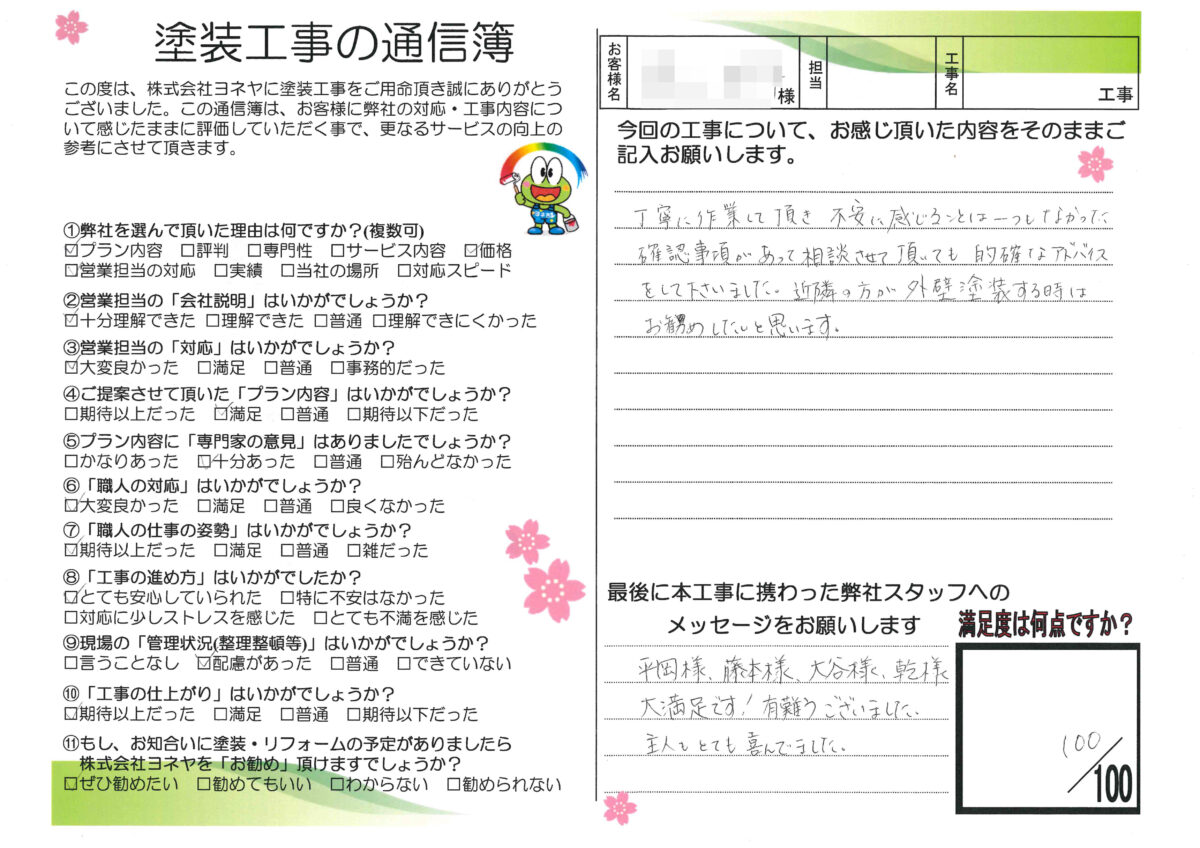 塗装工事の通信簿
この度は、株式会社ヨネヤに塗装工事をご用命頂き誠にありがとう
ございました。この通信簿は、お客様に弊社の対応・工事内容につ
いて感じたままに評価していただく事で、更なるサービスの向上の
参考にさせて頂きます。
①弊社を選んで頂いた理由は何ですか？(複数可)
☑プラン内容 □評判 □専門性 □サービス内容 ☑価格
☑営業担当の対応 □実績 □当社の場所 □対応スピード
②営業担当の「会社説明」はいかがでしょうか？
☑十分理解できた □理解できた □普通 □理解できにくかった
③営業担当の「対応」はいかがでしょうか？
☑大変良かった □満足 □普通 □事務的だった
④ご提案させて頂いた「プラン内容」はいかがでしょうか？
□期待以上だった ☑満足 □普通 □期待以下だった
⑤プラン内容に「専門家の意見」はありましたでしょうか？
□かなりあった ☑十分あった □普通 □殆んどなかった
⑥「職人の対応」はいかがでしょうか？
☑大変良かった □満足 □普通 □良くなかった
⑦「職人の仕事の姿勢」はいかがでしょうか？
☑期待以上だった □満足 □普通 □雑だった
⑧「工事の進め方」はいかがでしたか？
☑とても安心していられた □特に不安はなかった
□対応に少しストレスを感じた □とても不満を感じた
⑨現場の「管理状況(整理整頓等)」はいかがでしょうか？
□言うことなし ☑配慮があった □普通 □できていない
⑩「工事の仕上がり」はいかがでしょうか？
☑期待以上だった □満足 □普通 □期待以下だった
⑪もし、お知合いに塗装・リフォームの予定がありましたら
株式会社ヨネヤを「お勧め」頂けますでしょうか？
□ぜひ勧めたい □勧めてもいい □わからない □勧められない
お客様名 様 担当 工事名 工事
今回の工事について、お感じ頂いた内容をそのままご
記入お願いします。
丁寧に作業して頂き 不安に感じることは一つもなかった
確認事項があって相談させて頂いても 的確なアドバイス
をして下さいました。近隣の方が 外壁塗装する時は
お勧めしたいと思います。
最後に本工事に携わった弊社スタッフへの
メッセージをお願いします
平岡様、藤本様、大谷様、乾様
大満足です！有難うございました。
主人もとても喜んでました。
満足度は何点ですか？
100
100